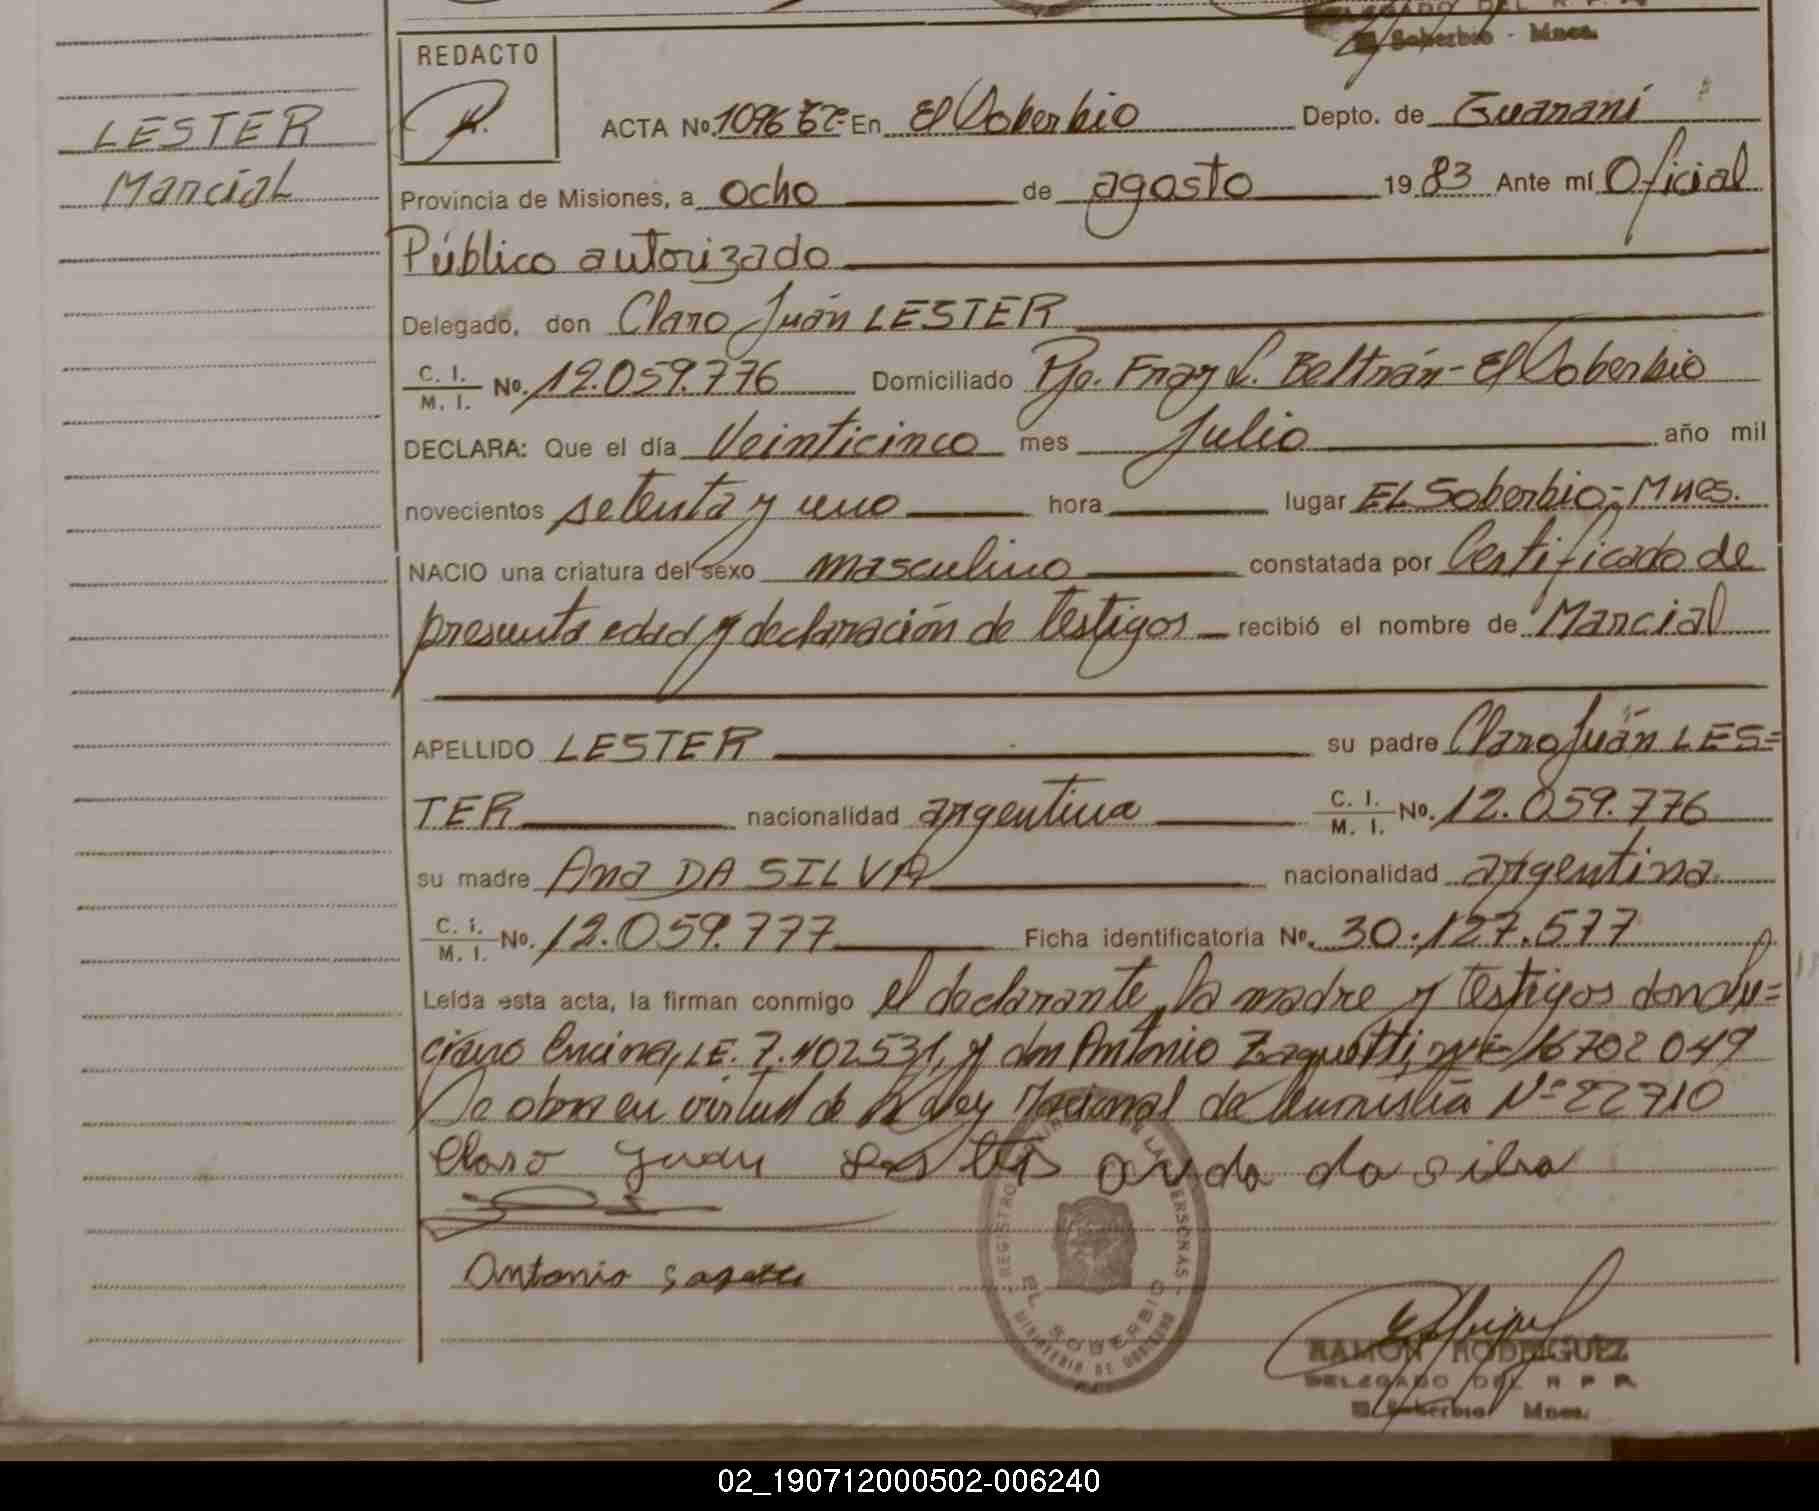 DELEGADO DEL R P P
El Soberbio - Mnes.
REDACTO
LESTER
Marcial
ACTA No. 1096 En El Soberbio Depto. de Guaraní
Provincia de Misiones, a ocho de agosto 19 83 Ante mí Oficial
Público autorizado
Delegado, don Claro Juán LESTER
C. I.
M. I. No. 12.059.776 Domiciliado Pje. Fray L. Beltrán - El Soberbio
DECLARA: Que el día Veinticinco mes Julio año mil
novecientos setenta y uno hora lugar EL Soberbio - Mnes.
NACIO una criatura del sexo masculino constatada por Certificado de
presunta edad y declaración de testigos recibió el nombre de Marcial
APELLIDO LESTER su padre Claro Juán LES=
TER nacionalidad argentina C. I.
M. I. No. 12.059.776
su madre Ana DA SILVA nacionalidad argentina
C. I.
M. I. No. 12.059.777 Ficha identificatoria No. 30.127.577
Leída esta acta, la firman conmigo el declarante, la madre y testigos don Lu=
ciano Encina, LE. 7.402531, y don Antonio 16702049
Se obra en virtud de la Ley Nacional de Amnistía Nº 22710
Claro Juan Lester anda da silva
Antonio
REGISTRO DE LAS PERSONAS
EL SOBERBIO
MINISTERIO DE GOBIERNO
RAMON RODRIGUEZ
DELEGADO DEL R P P
El Soberbio Mnes.
02_190712000502-006240